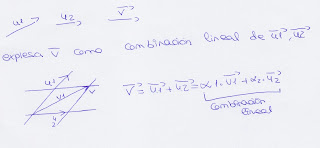 u1 u2 v
expresa v como combinación lineal de u1, u2
u1
v1 v
u2
v = u1 + u2 = α1·u1 + α2·u2
combinación
lineal